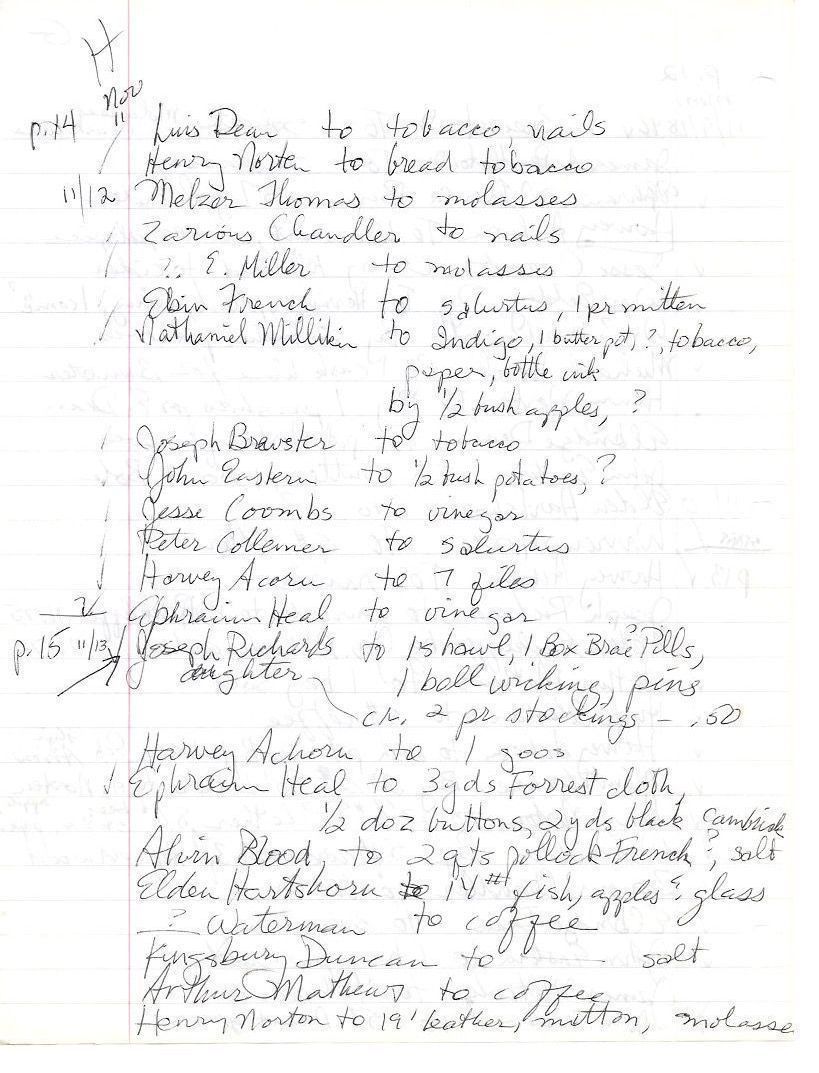 H
Nov
p. 14 11 Luis Dean to tobacco, nails
Henry Norton to bread tobacco
11/12 Melzer Thomas to molasses
Zarious Chandler to nails
? E. Miller to molasses
Ebin French to salurtus, 1 pr mitten
Nathaniel Millikin to Indigo, 1 butter pot, ?, tobacco,
paper, bottle ink
by 1/2 bush apples, ?
Joseph Brewster to tobacco
John Eastern to 1/2 bush potatoes, ?
Jesse Coombs to vinegar
Peter Collemer to salurtus
Harvey Acorn to 7 files
Ephraim Heal to vinegar
p. 15 11/13 Joseph Richards to 1 shawl, 1 Box Brae? Pills,
daughter 1 ball wicking, pins
cr. 2 pr stockings - .50
Harvey Achorn to 1 goos
Ephraim Heal to 3 yds Forrest cloth,
1/2 doz buttons, 2 yds black Cambrick
Alvin Blood, to 2 qts pollock French ?, salt
Elden Hartshorn to 14# fish, apples & glass
? Waterman to coffee
Kingsbury Duncan to ____ salt
Arthur Mathews to coffee
Henry Norton to 19' leather, mutton, molasse